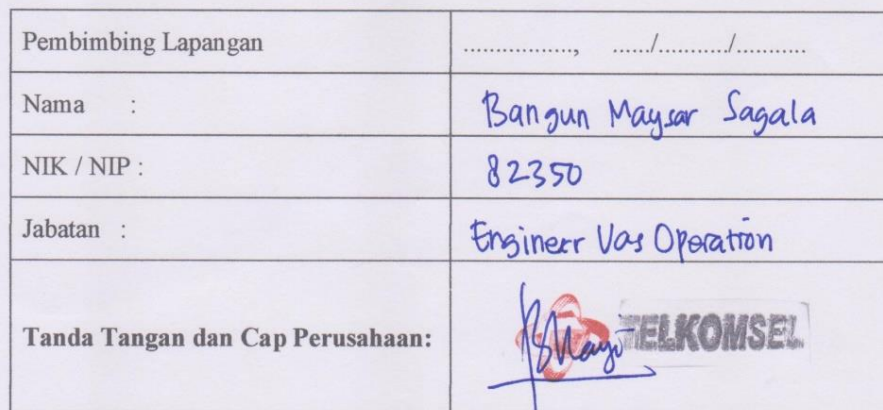 Pembimbing Lapangan ................., ....../.........../...........
Nama : Bangun Maysar Sagala
NIK / NIP : 82350
Jabatan : Engineer Vas Operation
Tanda Tangan dan Cap Perusahaan: TELKOMSEL